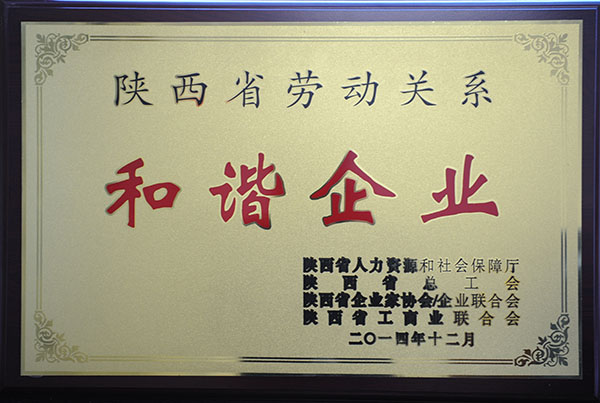 陕西省劳动关系
和谐企业
陕西省人力资源和社会保障厅
陕西省总工会
陕西省企业家协会/企业联合会
陕西省工商业联合会
二〇一四年十二月